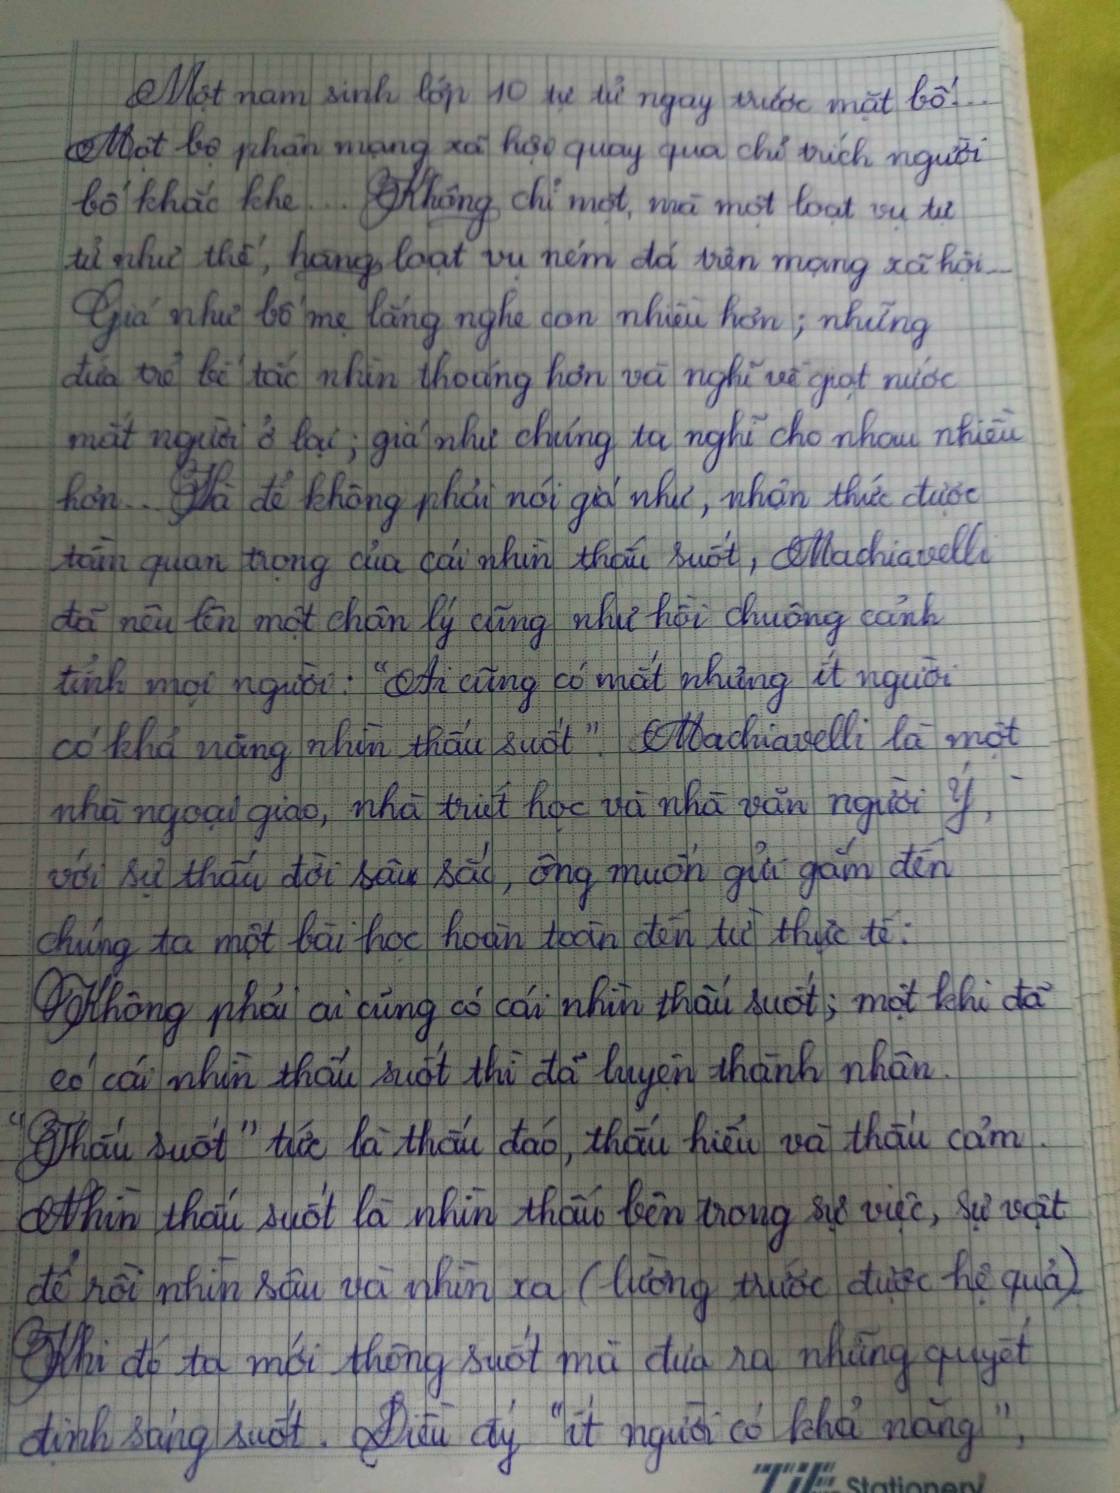 Một nam sinh lớp 10 tự tử ngay trước mặt bố...
Một bộ phận mạng xã hội quay qua chỉ trích người
bố khắc khe... Không chỉ một, mà một loạt vụ tự
tử như thế, hàng loạt vụ ném đá trên mạng xã hội...
Giá như bố mẹ lắng nghe con nhiều hơn; những
đứa trẻ bế tắc nhìn thoáng hơn và nghĩ về giọt nước
mắt người ở lại; giá như chúng ta nghĩ cho nhau nhiều
hơn... Và để không phải nói giá như, nhận thức được
tầm quan trọng của cái nhìn thấu suốt, Machiavelli
đã nêu lên một chân lý cũng như hồi chuông cảnh
tỉnh mọi người: "Ai cũng có mắt nhưng ít người
có khả năng nhìn thấu suốt". Machiavelli là một
nhà ngoại giao, nhà triết học và nhà văn người Ý,
với sự thấu đời sâu sắc, ông muốn gửi gắm đến
chúng ta một bài học hoàn toàn đến từ thực tế:
Không phải ai cũng có cái nhìn thấu suốt; một khi đã
có cái nhìn thấu suốt thì đã luyện thành nhân.
"Thấu suốt" tức là thấu đáo, thấu hiểu và thấu cảm.
Nhìn thấu suốt là nhìn thấu bên trong sự việc, sự vật
để rồi nhìn sâu và nhìn xa (lường trước được hệ quả)
Khi đó ta mới thông suốt mà đưa ra những quyết
định sáng suốt. Điều ấy "ít người có khả năng",
TiE Stationery